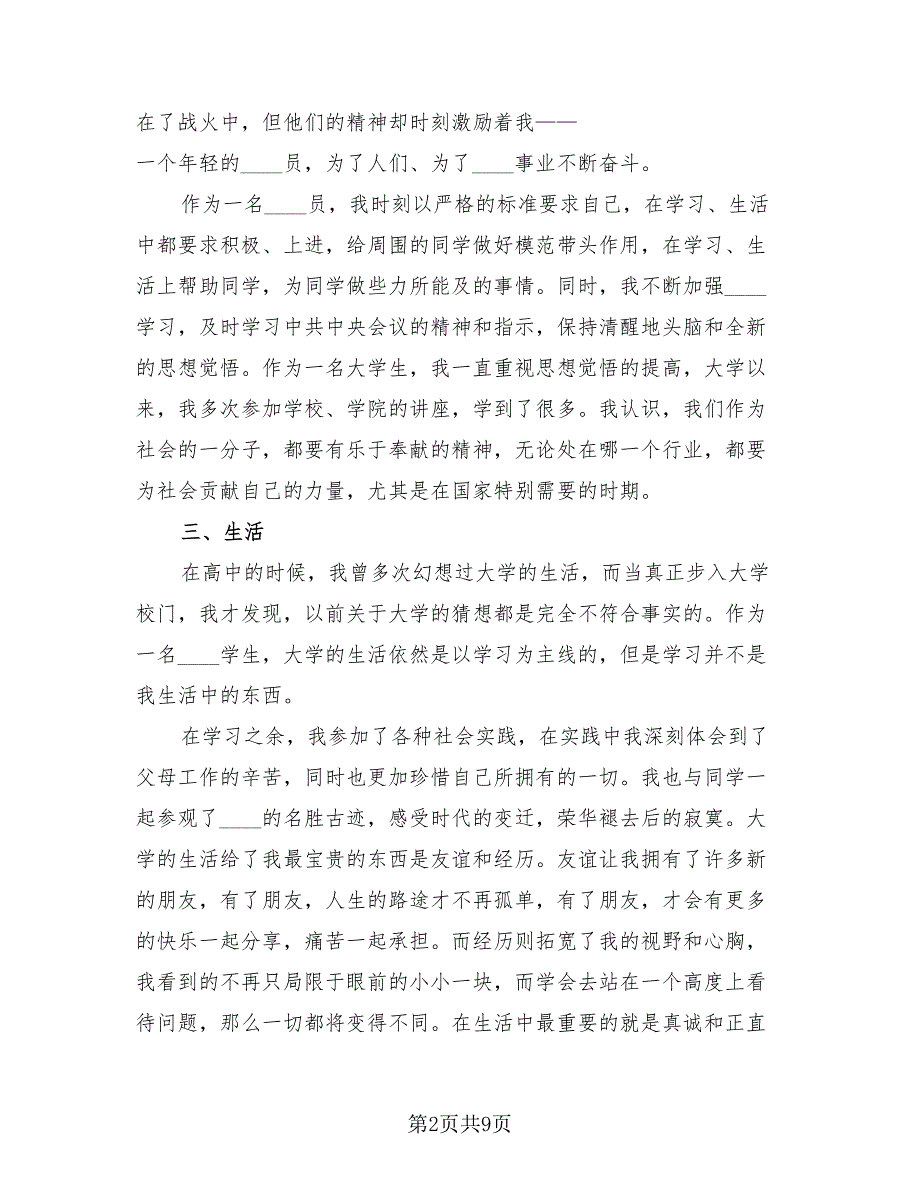 在了战火中，但他们的精神却时刻激励着我——
一个年轻的____员，为了人们、为了____事业不断奋斗。
作为一名____员，我时刻以严格的标准要求自己，在学习、生活
中都要求积极、上进，给周围的同学做好模范带头作用，在学习、生
活上帮助同学，为同学做些力所能及的事情。同时，我不断加强____
学习，及时学习中共中央会议的精神和指示，保持清醒地头脑和全新
的思想觉悟。作为一名大学生，我一直重视思想觉悟的提高，大学以
来，我多次参加学校、学院的讲座，学到了很多。我认识，我们作为
社会的一分子，都要有乐于奉献的精神，无论处在哪一个行业，都要
为社会贡献自己的力量，尤其是在国家特别需要的时期。
三、生活
在高中的时候，我曾多次幻想过大学的生活，而当真正步入大学
校门，我才发现，以前关于大学的猜想都是完全不符合事实的。作为
一名____学生，大学的生活依然是以学习为主线的，但是学习并不是
我生活中的东西。
在学习之余，我参加了各种社会实践，在实践中我深刻体会到了
父母工作的辛苦，同时也更加珍惜自己所拥有的一切。我也与同学一
起参观了____的名胜古迹，感受时代的变迁，荣华褪去后的寂寞。大
学的生活给了我最宝贵的东西是友谊和经历。友谊让我拥有了许多新
的朋友，有了朋友，人生的路途才不再孤单，有了朋友，才会有更多
的快乐一起分享，痛苦一起承担。而经历则拓宽了我的视野和心胸，
我看到的不再只局限于眼前的小小一块，而学会去站在一个高度上看
待问题，那么一切都将变得不同。在生活中最重要的就是真诚和正直
第2页共9页